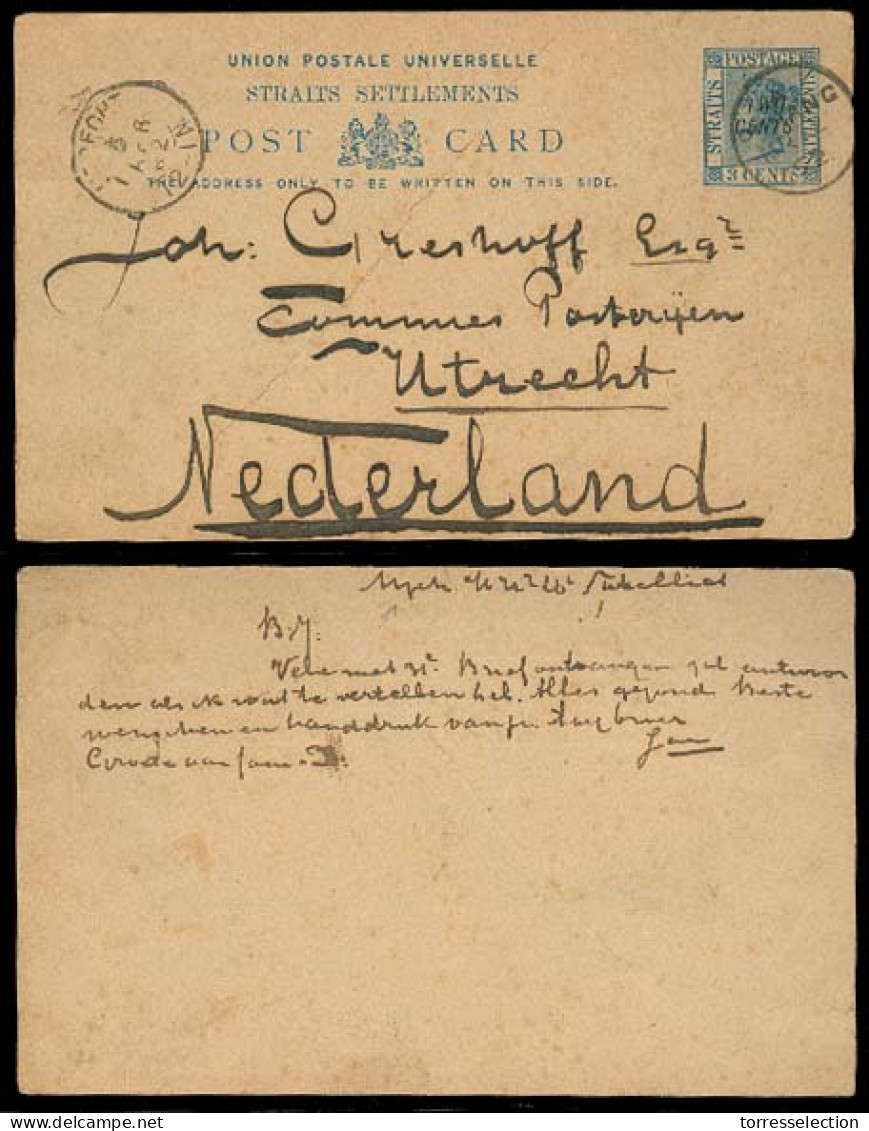 UNION POSTALE UNIVERSELLE
STRAITS SETTLEMENTS
POST CARD
THE ADDRESS ONLY TO BE WRITTEN ON THIS SIDE.
POSTAGE
STRAITS
TWO
CENTS
3 CENTS
APR
Joh: Greshoff Esqr
Commies Posterijen
Utrecht
Nederland
B.J.
Vele met Brief ontvangen zal antwoor
den als ik wat te vertellen heb. Alles gezond beste
wenschen en handdruk van
Jan
torresselection